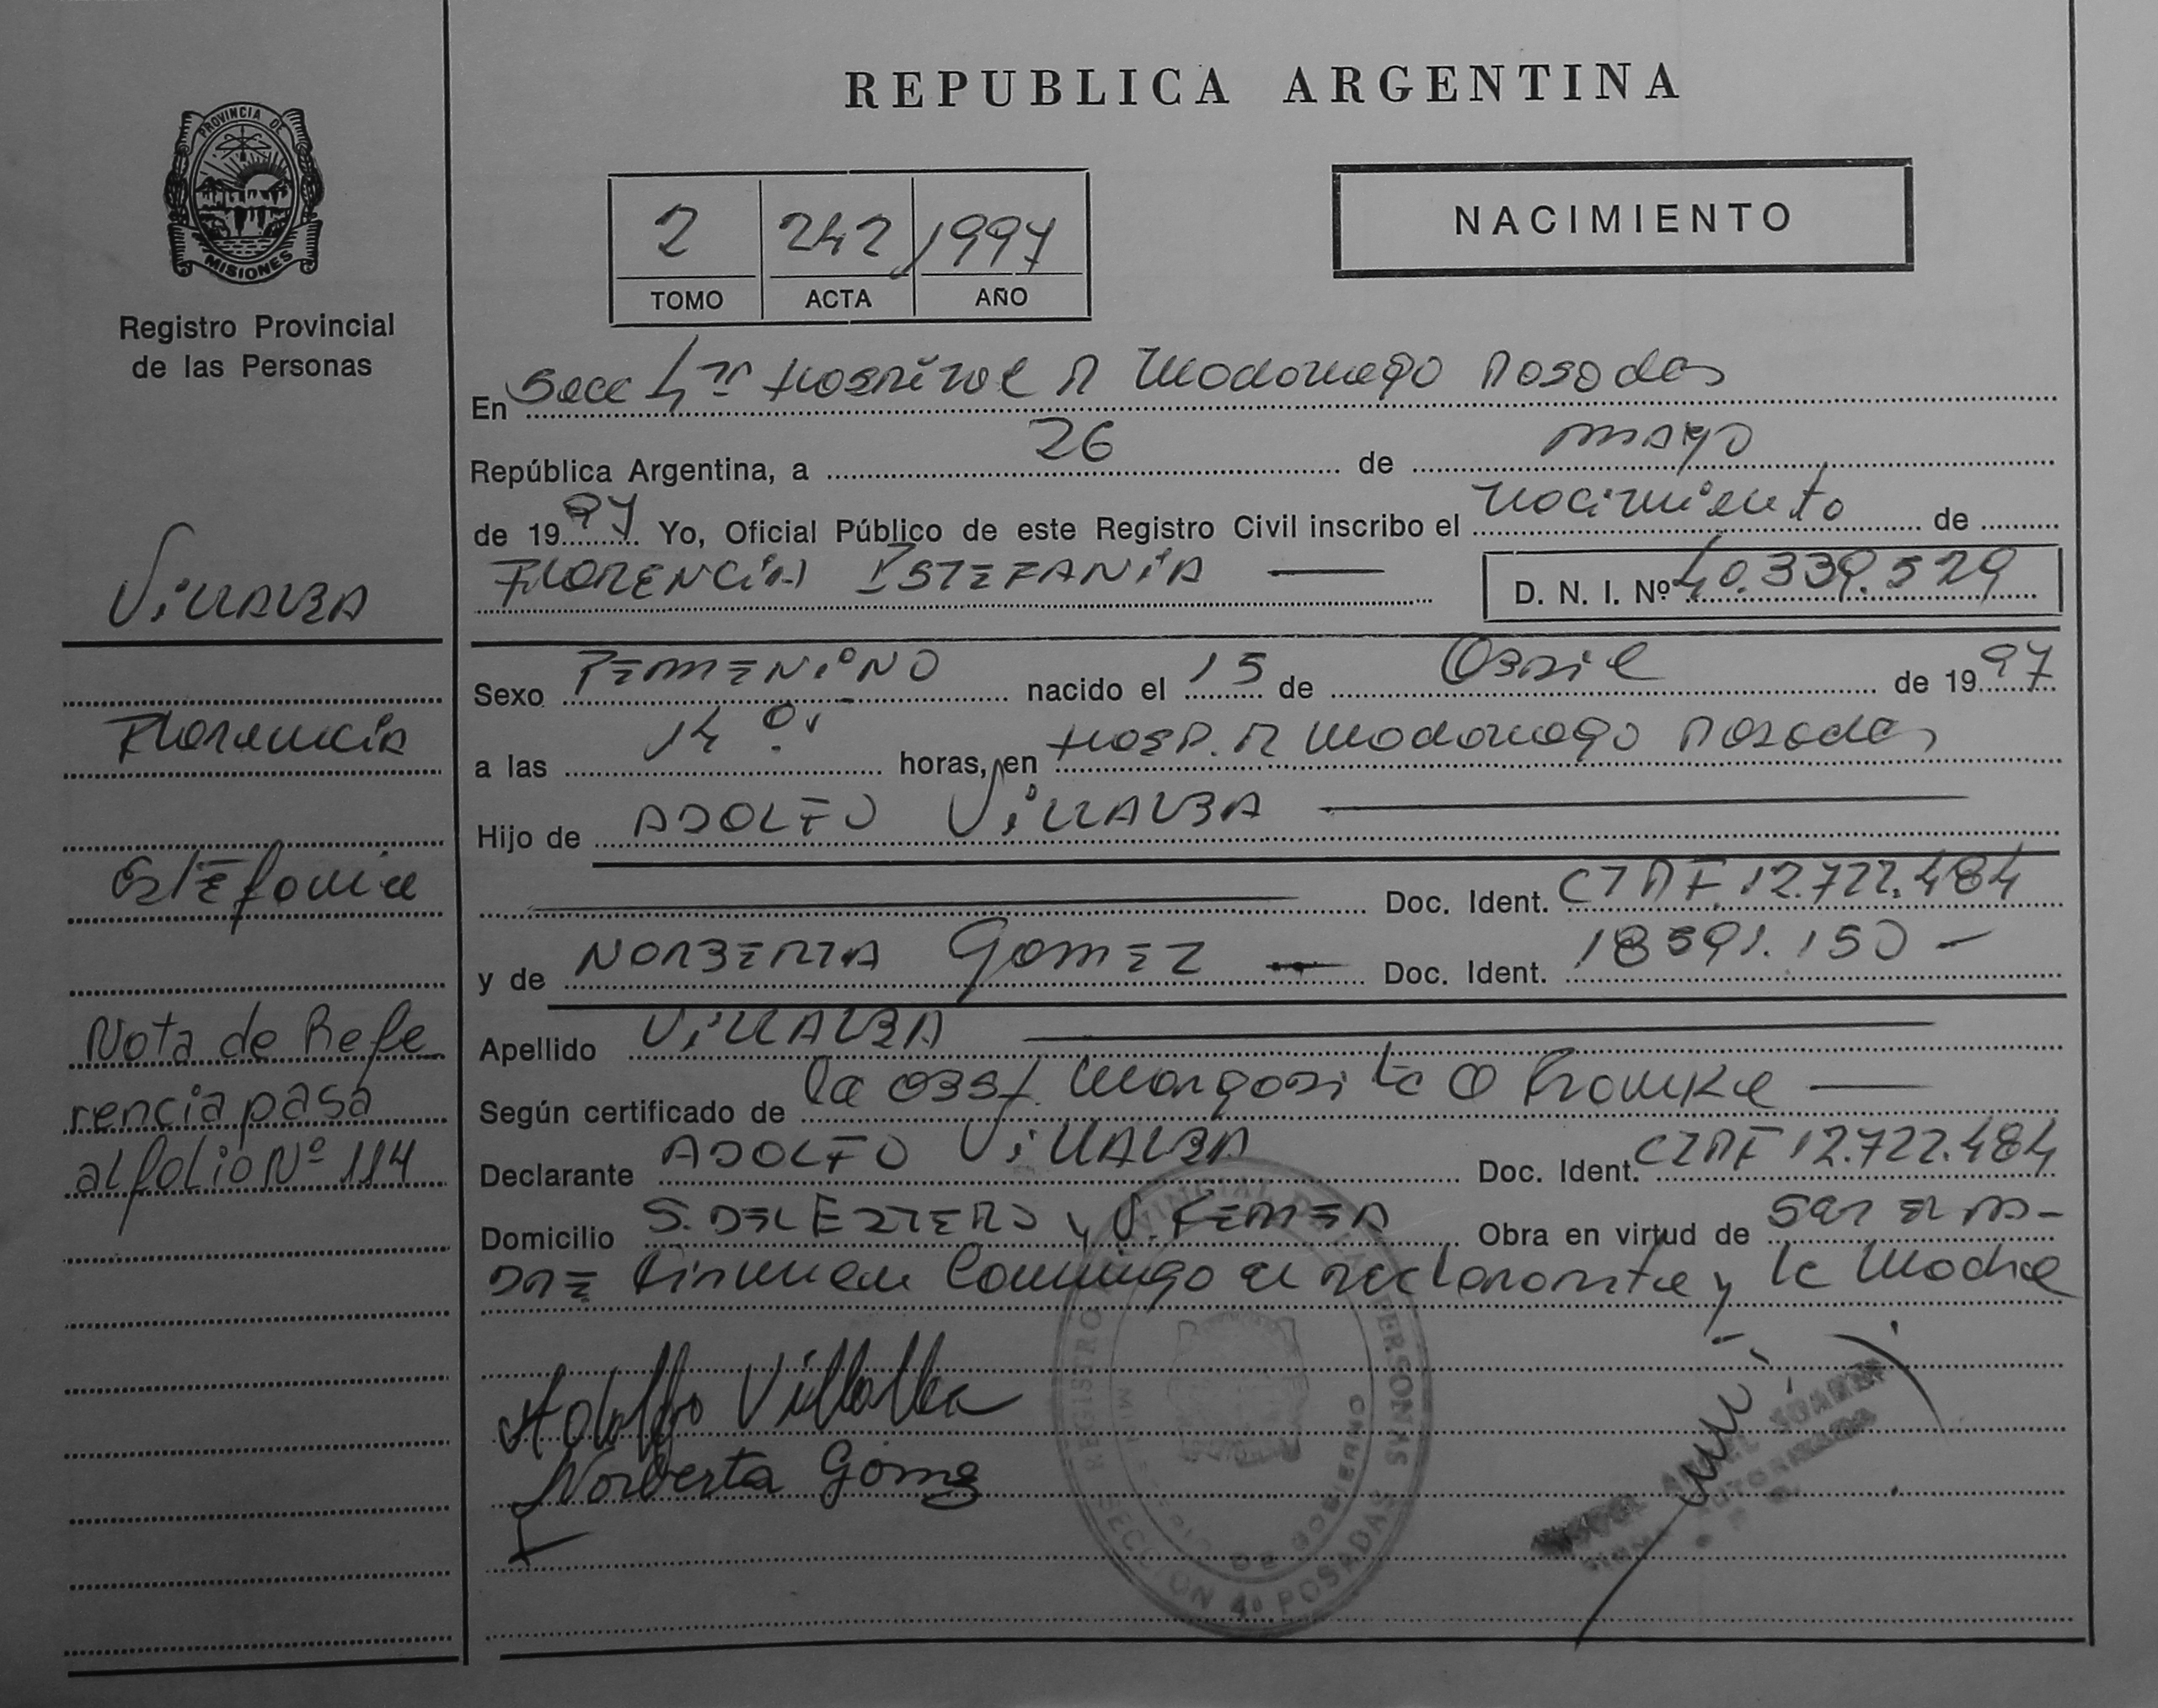 REPUBLICA ARGENTINA
PROVINCIA DE
MISIONES
Registro Provincial
de las Personas
2 242 1997
TOMO ACTA AÑO
NACIMIENTO
En Secc 4ta Hospital R Madariaga Posadas
República Argentina, a 26 de mayo
de 1997 Yo, Oficial Público de este Registro Civil inscribo el nacimiento de
FLORENCIA ESTEFANIA
D. N. I. Nº 40.339.529
Villalba
Florencia
Estefania
Nota de Refe
rencia pasa
al folio Nº 114
Sexo FEMENINO nacido el 15 de Abril de 1997
a las 14 horas, en Hosp. R Madariaga Posadas
Hijo de ADOLFO VILLALBA
Doc. Ident. 12.722.484
y de NORBERTA GOMEZ Doc. Ident. 18591.150
Apellido VILLALBA
Según certificado de la obst. Margarita
Declarante ADOLFO VILLALBA Doc. Ident. 12.722.484
Domicilio S. DEL ESTERO y Obra en virtud de ser el pa-
dre firman conmigo el declarante y la Madre
Adolfo Villalba
Norberta Gomez
REGISTRO PROVINCIAL DE LAS PERSONAS
SECCION 4a POSADAS
DE GOBIERNO